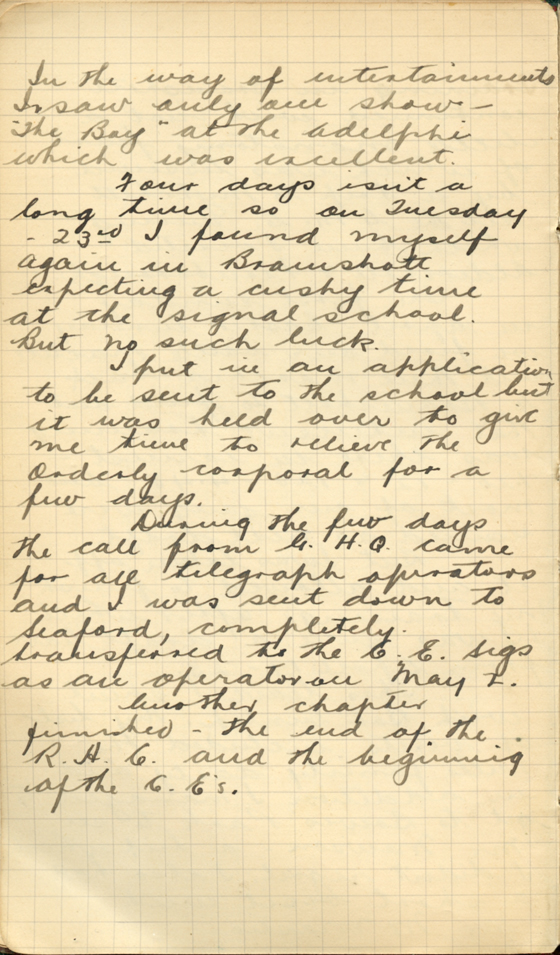 In the way of entertainments
I saw only one show -
"The Boy" at the Adelphi
which was excellent.
Four days isn't a
long time so on Tuesday
- 23rd I found myself
again in Bramshott
expecting a cushy time
at the signal school.
But no such luck.
I put in an application
to be sent to the school but
it was held over to give
me time to relieve the
Orderly corporal for a
few days.
During the few days
the call from G. H. Q. came
for all telegraph operators
and I was sent down to
Seaford, completely
transferred to the C. E. Sigs
as an operator on May 2.
Another chapter
finished - the end of the
R. H. C. and the beginning
of the C. E's.